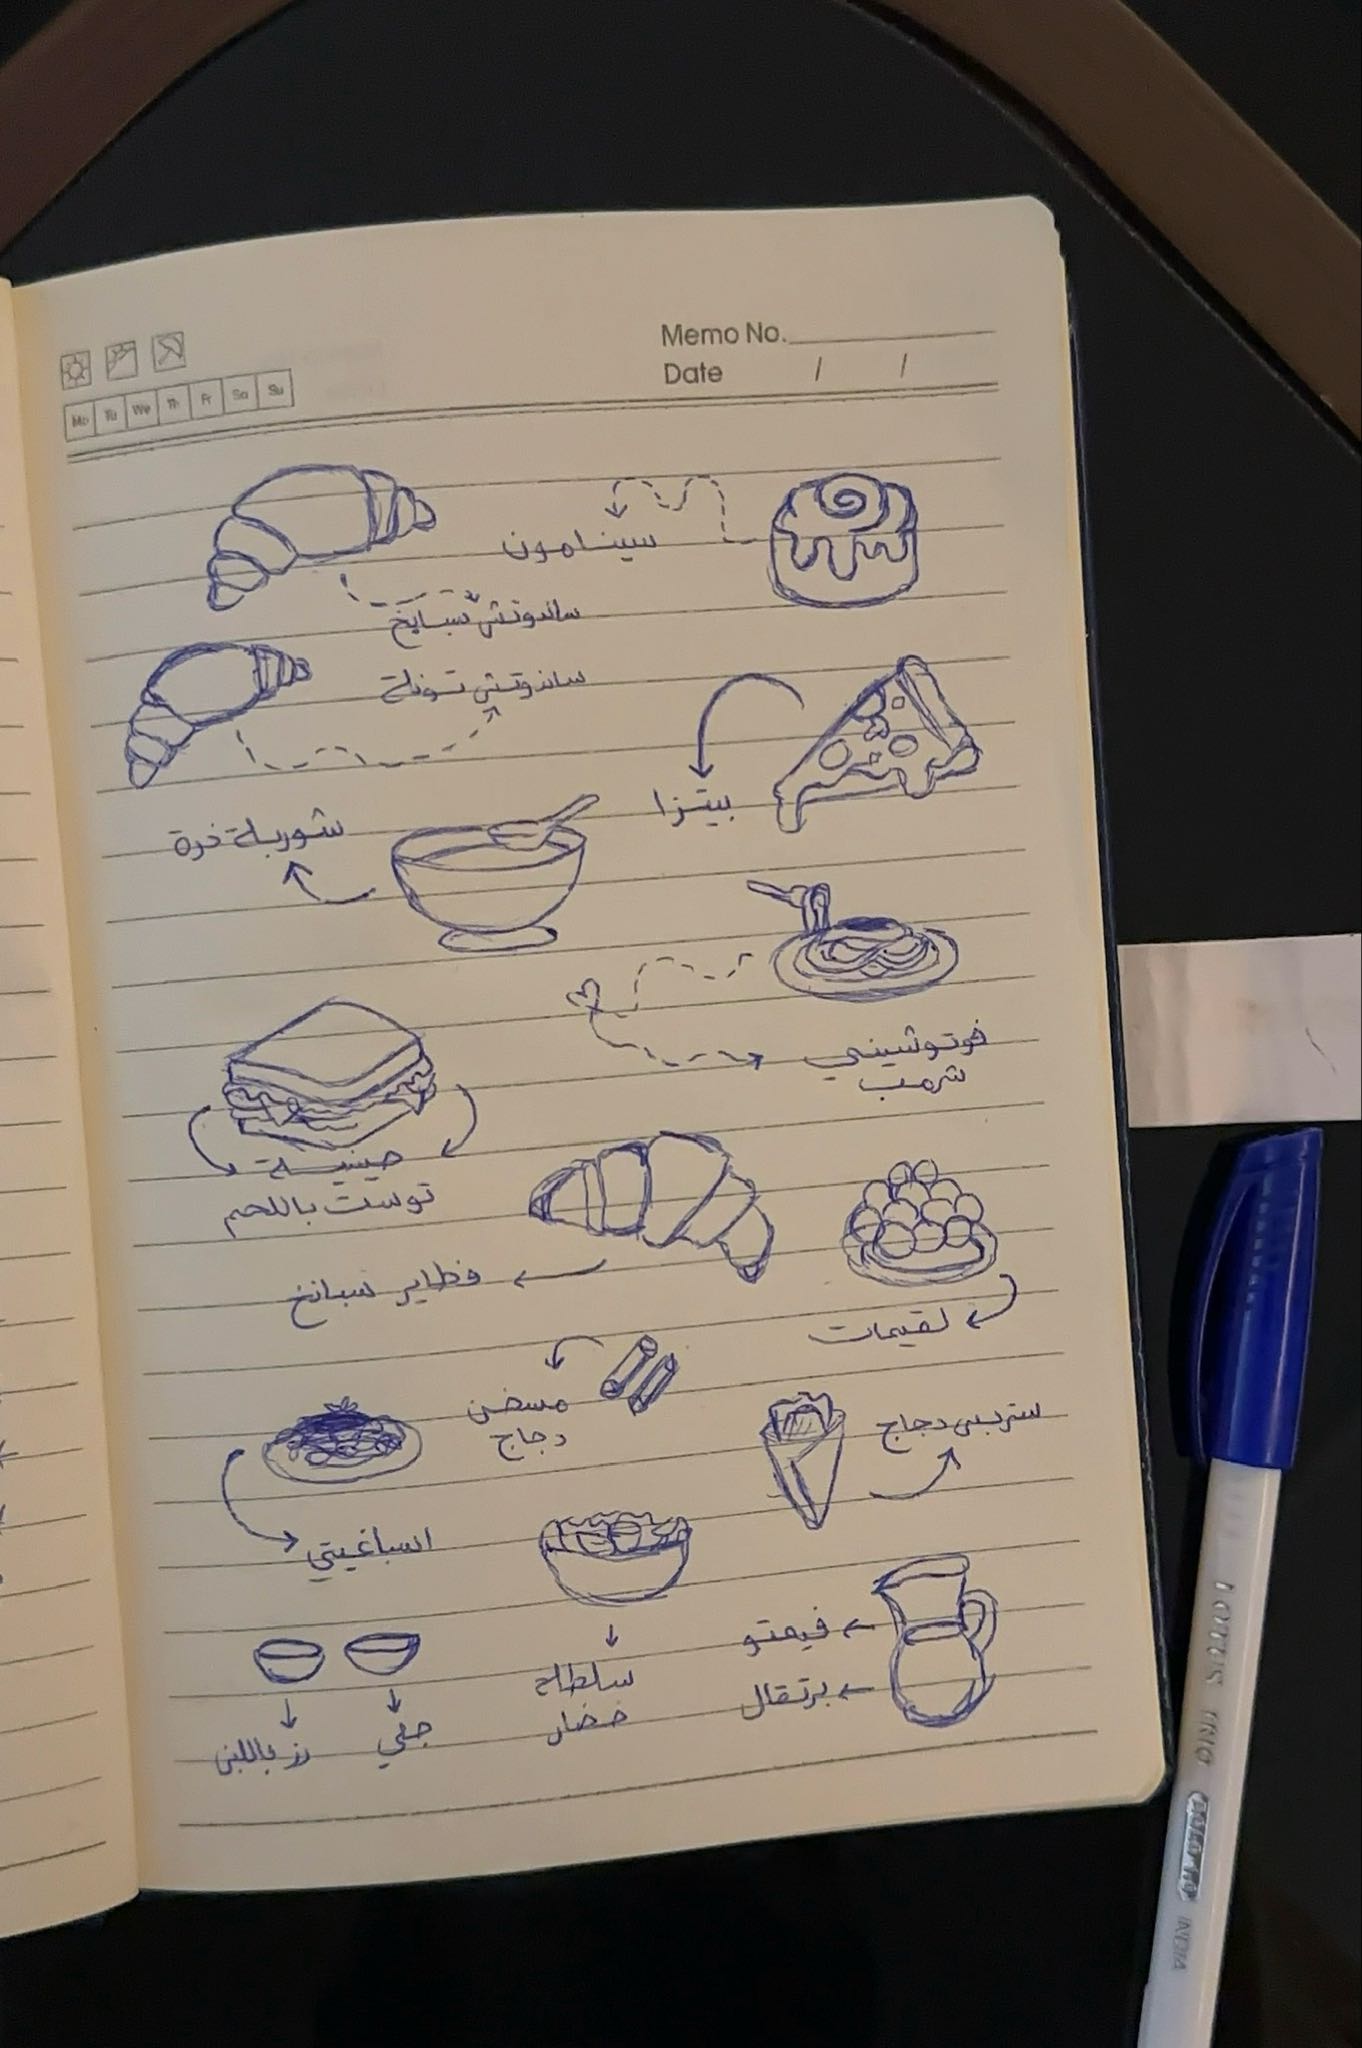 Memo No.
Date / /
Mo Tu We Th Fr Sa Su
سينامون
ساندوتش سبايخ
ساندوتش تونة
بيتزا
شوربة ذرة
فوتوشيني
شرمب
صينية
توست باللحم
فطاير سبانخ
لقيمات
مسخن
دجاج
ستربس دجاج
اسباغيتي
فيمتو
برتقال
سلطاح
خضار
جلي
رز باللبن
LOTUS UNO
INDIA